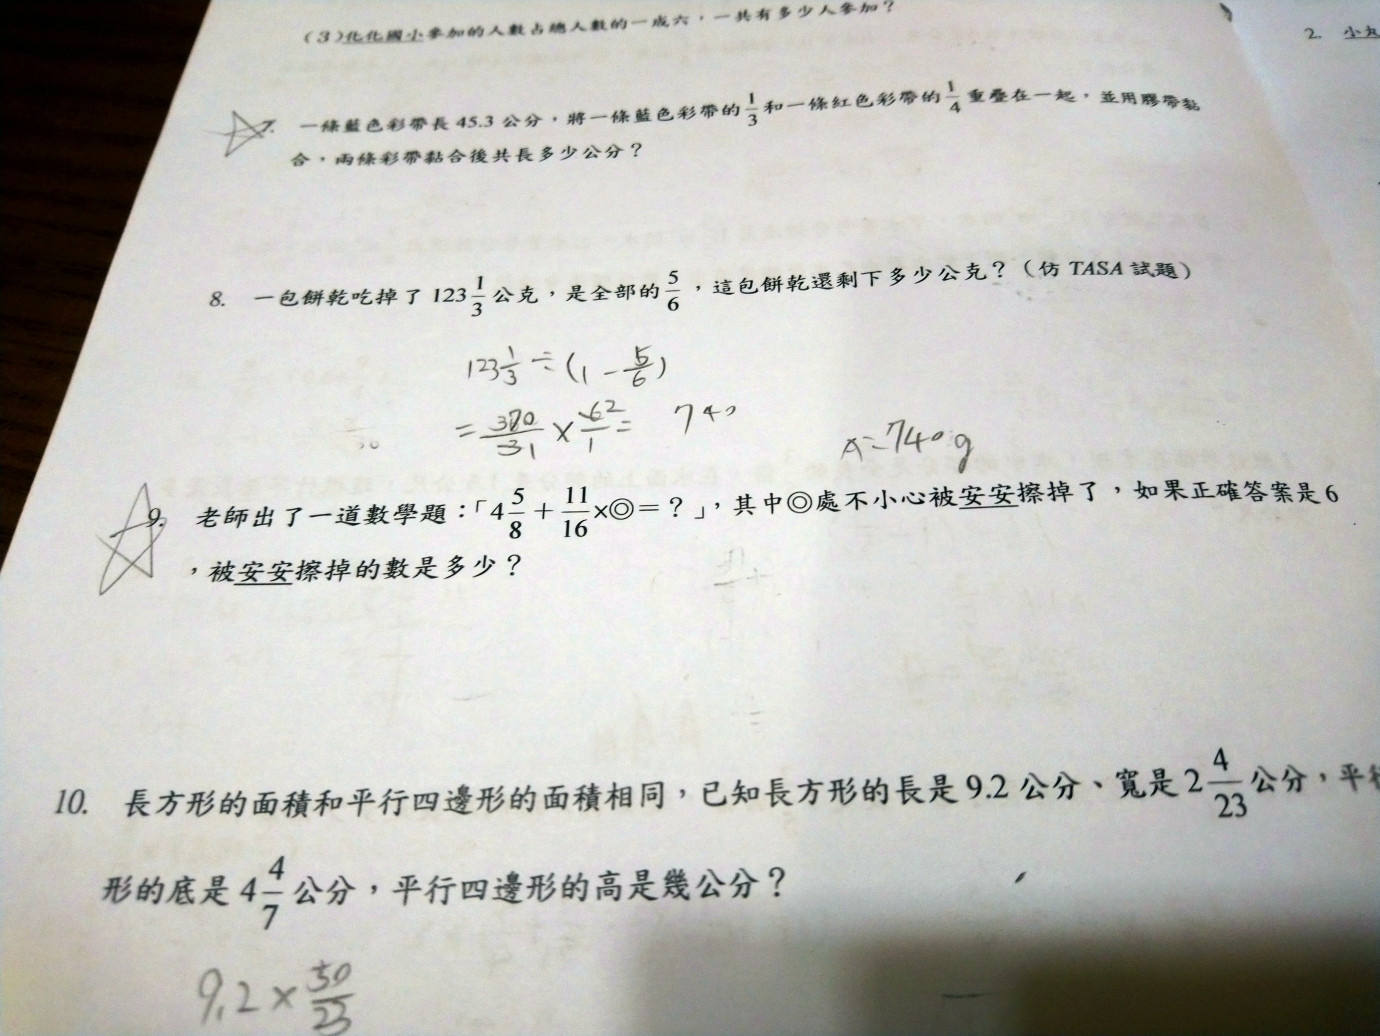 (3)化化國小參加的人數占總人數的一成六，一共有多少人參加？
2. 小丸
7. 一條藍色彩帶長 45.3 公分，將一條藍色彩帶的 1/3 和一條紅色彩帶的 1/4 重疊在一起，並用膠帶黏
合，兩條彩帶黏合後共長多少公分？
8. 一包餅乾吃掉了 123 1/3 公克，是全部的 5/6，這包餅乾還剩下多少公克？（仿 TASA 試題）
123 1/3 ÷ (1 - 5/6)
= 370/3 1 × 6 2/1 = 740
A=740g
9. 老師出了一道數學題：「4 5/8 + 11/16 ×◎＝？」，其中◎處不小心被安安擦掉了，如果正確答案是 6
，被安安擦掉的數是多少？
10. 長方形的面積和平行四邊形的面積相同，已知長方形的長是 9.2 公分、寬是 2 4/23 公分，平行
形的底是 4 4/7 公分，平行四邊形的高是幾公分？
9.2 × 50/23